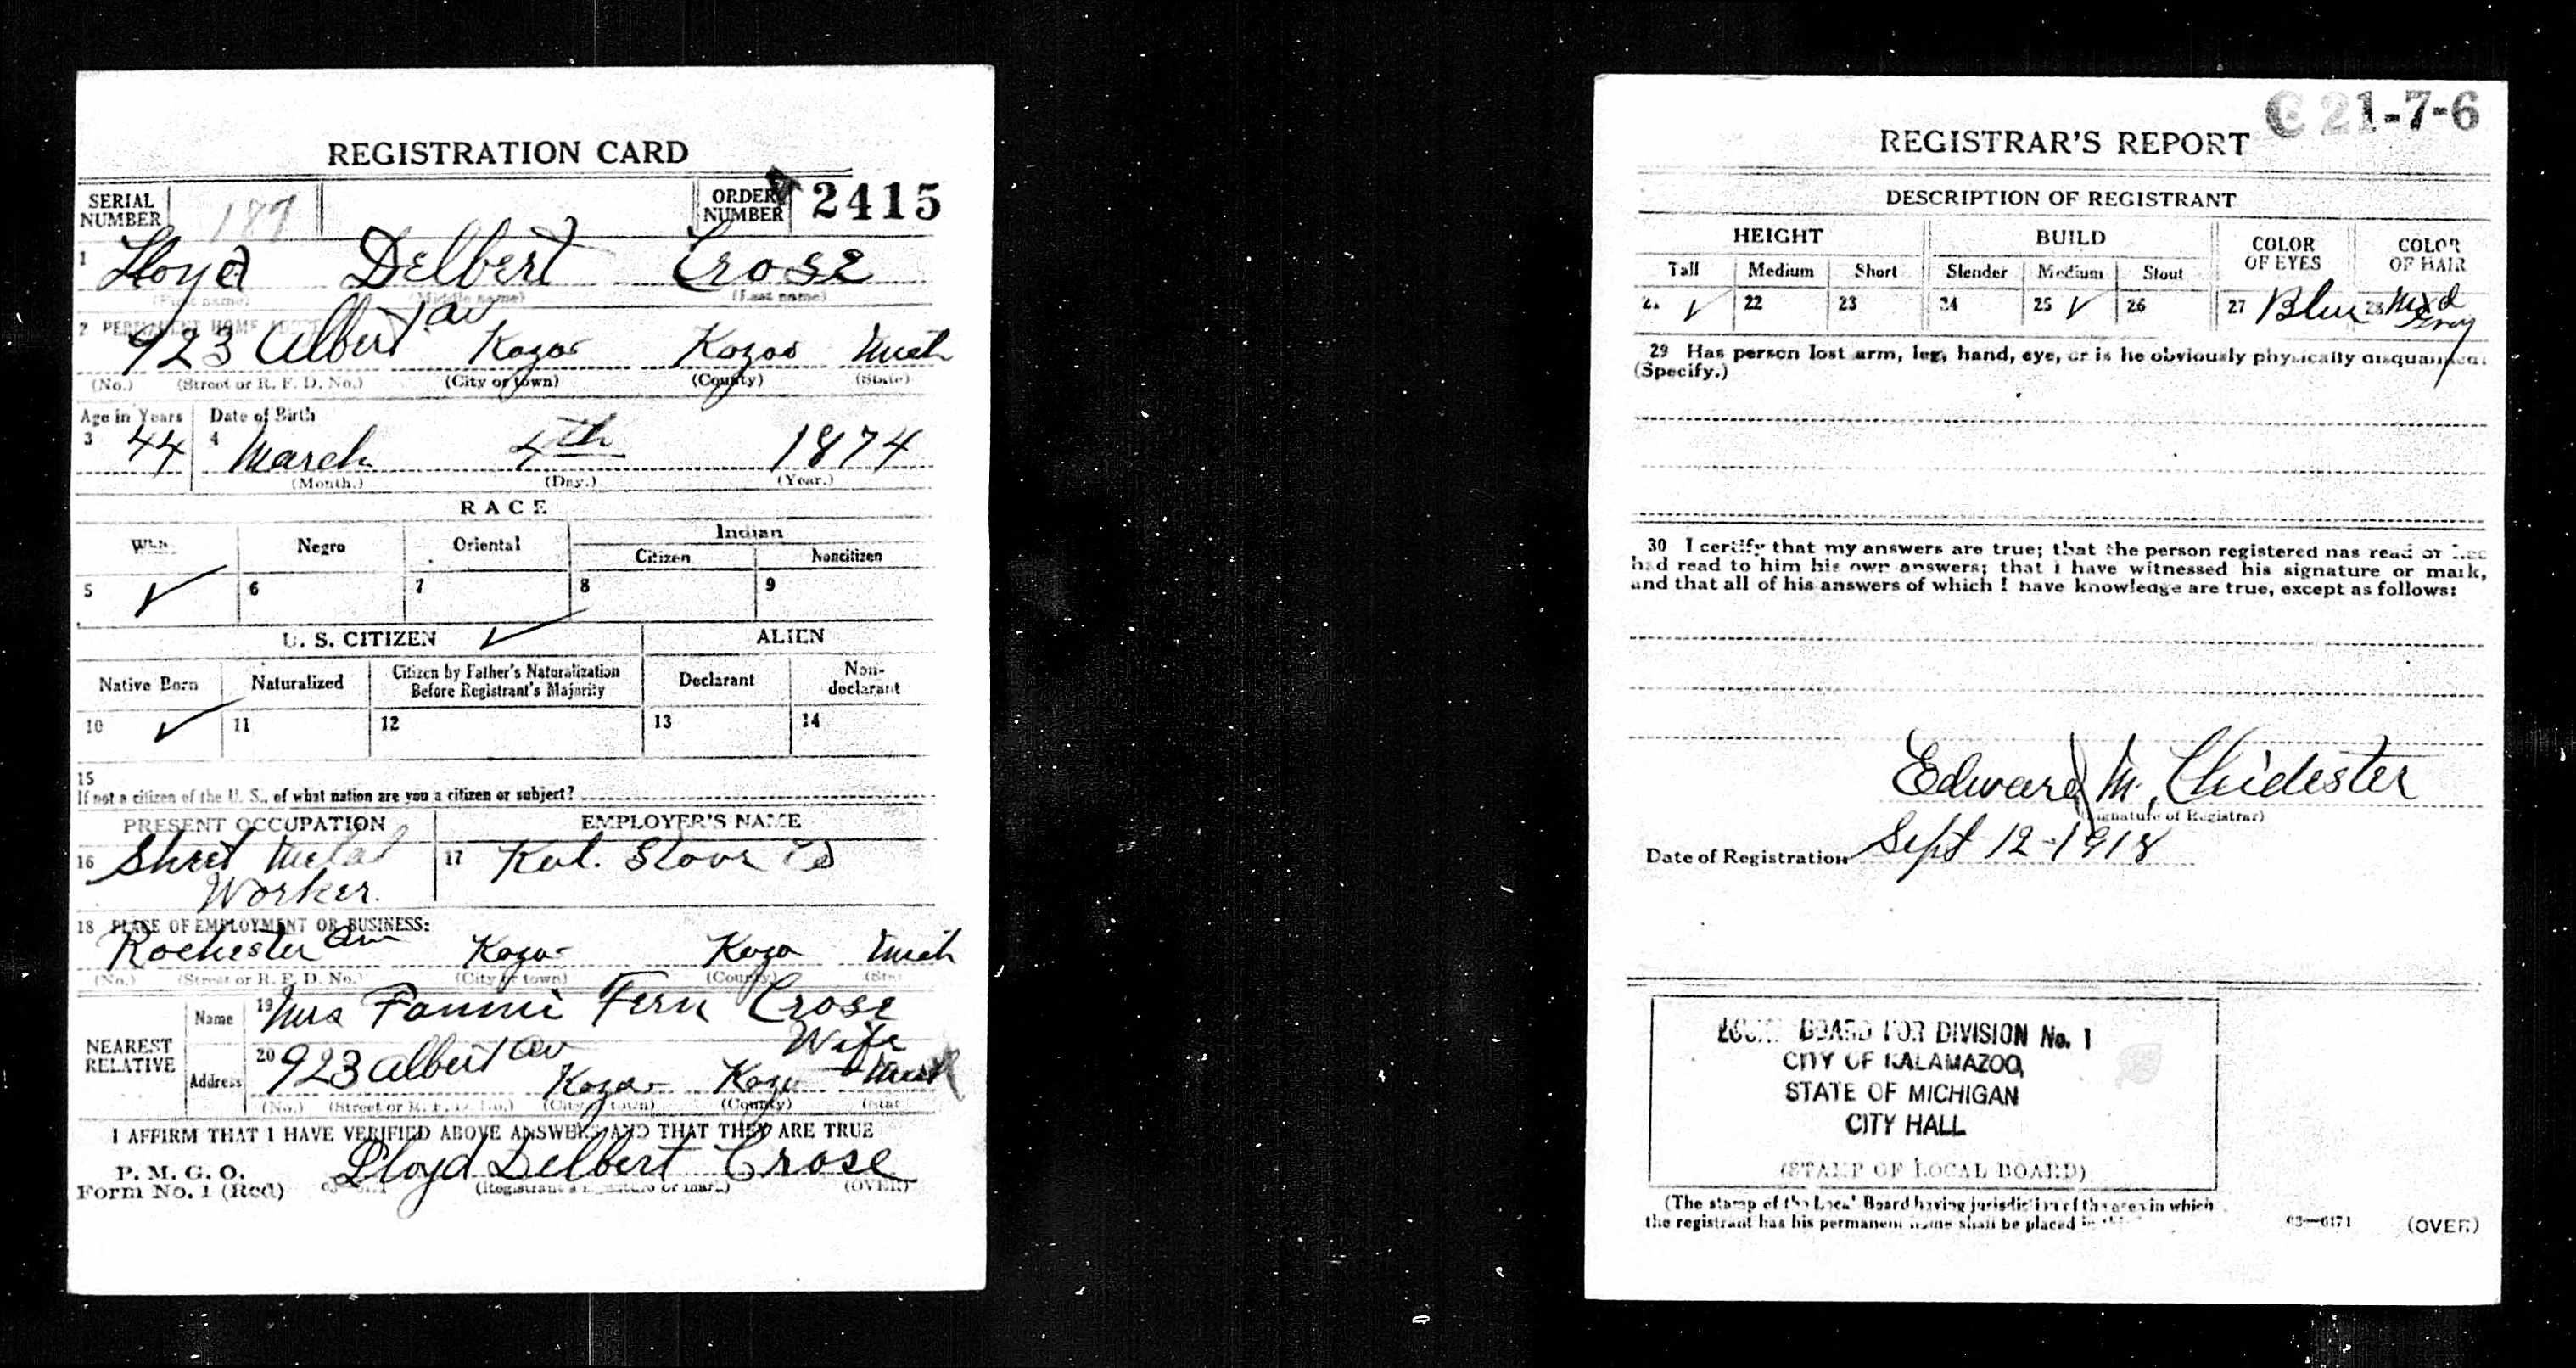 REGISTRATION CARD
SERIAL NUMBER 189 ORDER NUMBER 2415
1 Lloyd Delbert Crose
(First name) (Middle name) (Last name)
2 PERMANENT HOME ADDRESS
923 Albert av Kazoo Kazoo Mich
(No.) (Street or R. F. D. No.) (City or town) (County) (State)
Age in Years Date of Birth
3 44 4 March 4th 1874
(Month.) (Day.) (Year.)
RACE
White Negro Oriental Indian
Citizen Noncitizen
5 ✓ 6 7 8 9
U. S. CITIZEN ✓ ALIEN
Native Born Naturalized Citizen by Father's Naturalization Before Registrant's Majority Declarant Non-declarant
10 ✓ 11 12 13 14
15
If not a citizen of the U. S., of what nation are you a citizen or subject?
PRESENT OCCUPATION EMPLOYER'S NAME
16 Sheet Metal 17 Kal. Stove Co
Worker.
18 PLACE OF EMPLOYMENT OR BUSINESS:
Rochester Kazoo Kazo Mich
(No.) (Street or R. F. D. No.) (City or town) (County) (State)
NEAREST RELATIVE
Name 19 Mrs Fannie Fern Crose
Wife
Address 20 923 Albert av Kazoo Kazo Mich
(No.) (Street or R. F. D. No.) (City or town) (County) (State)
I AFFIRM THAT I HAVE VERIFIED ABOVE ANSWERS AND THAT THEY ARE TRUE
P. M. G. O.
Form No. 1 (Red) Lloyd Delbert Crose
(Registrant's signature or mark) (OVER)
C 21-7-6
REGISTRAR'S REPORT
DESCRIPTION OF REGISTRANT
HEIGHT BUILD COLOR OF EYES COLOR OF HAIR
Tall Medium Short Slender Medium Stout
21 ✓ 22 23 24 25 ✓ 26 27 Blue 28 Mxd Gray
29 Has person lost arm, leg, hand, eye, or is he obviously physically disqualified?
(Specify.)
30 I certify that my answers are true; that the person registered has read or has
had read to him his own answers; that I have witnessed his signature or mark,
and that all of his answers of which I have knowledge are true, except as follows:
Edward M. Chidester
(Signature of Registrar)
Date of Registration Sept 12-1918
LOCAL BOARD FOR DIVISION No. 1
CITY OF KALAMAZOO,
STATE OF MICHIGAN
CITY HALL
(STAMP OF LOCAL BOARD)
(The stamp of the Local Board having jurisdiction of the area in which
the registrant has his permanent home shall be placed in
03—6171 (OVER)